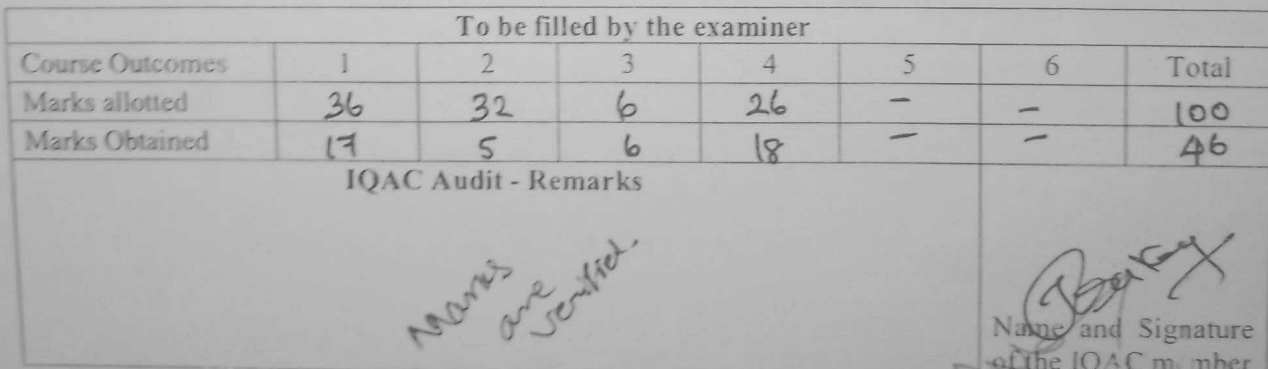 To be filled by the examiner
Course Outcomes 1 2 3 4 5 6 Total
Marks allotted 36 32 6 26 - - 100
Marks Obtained 17 5 6 18 - - 46
IQAC Audit - Remarks
Marks
are
verified.
Name and Signature
of the IQAC member